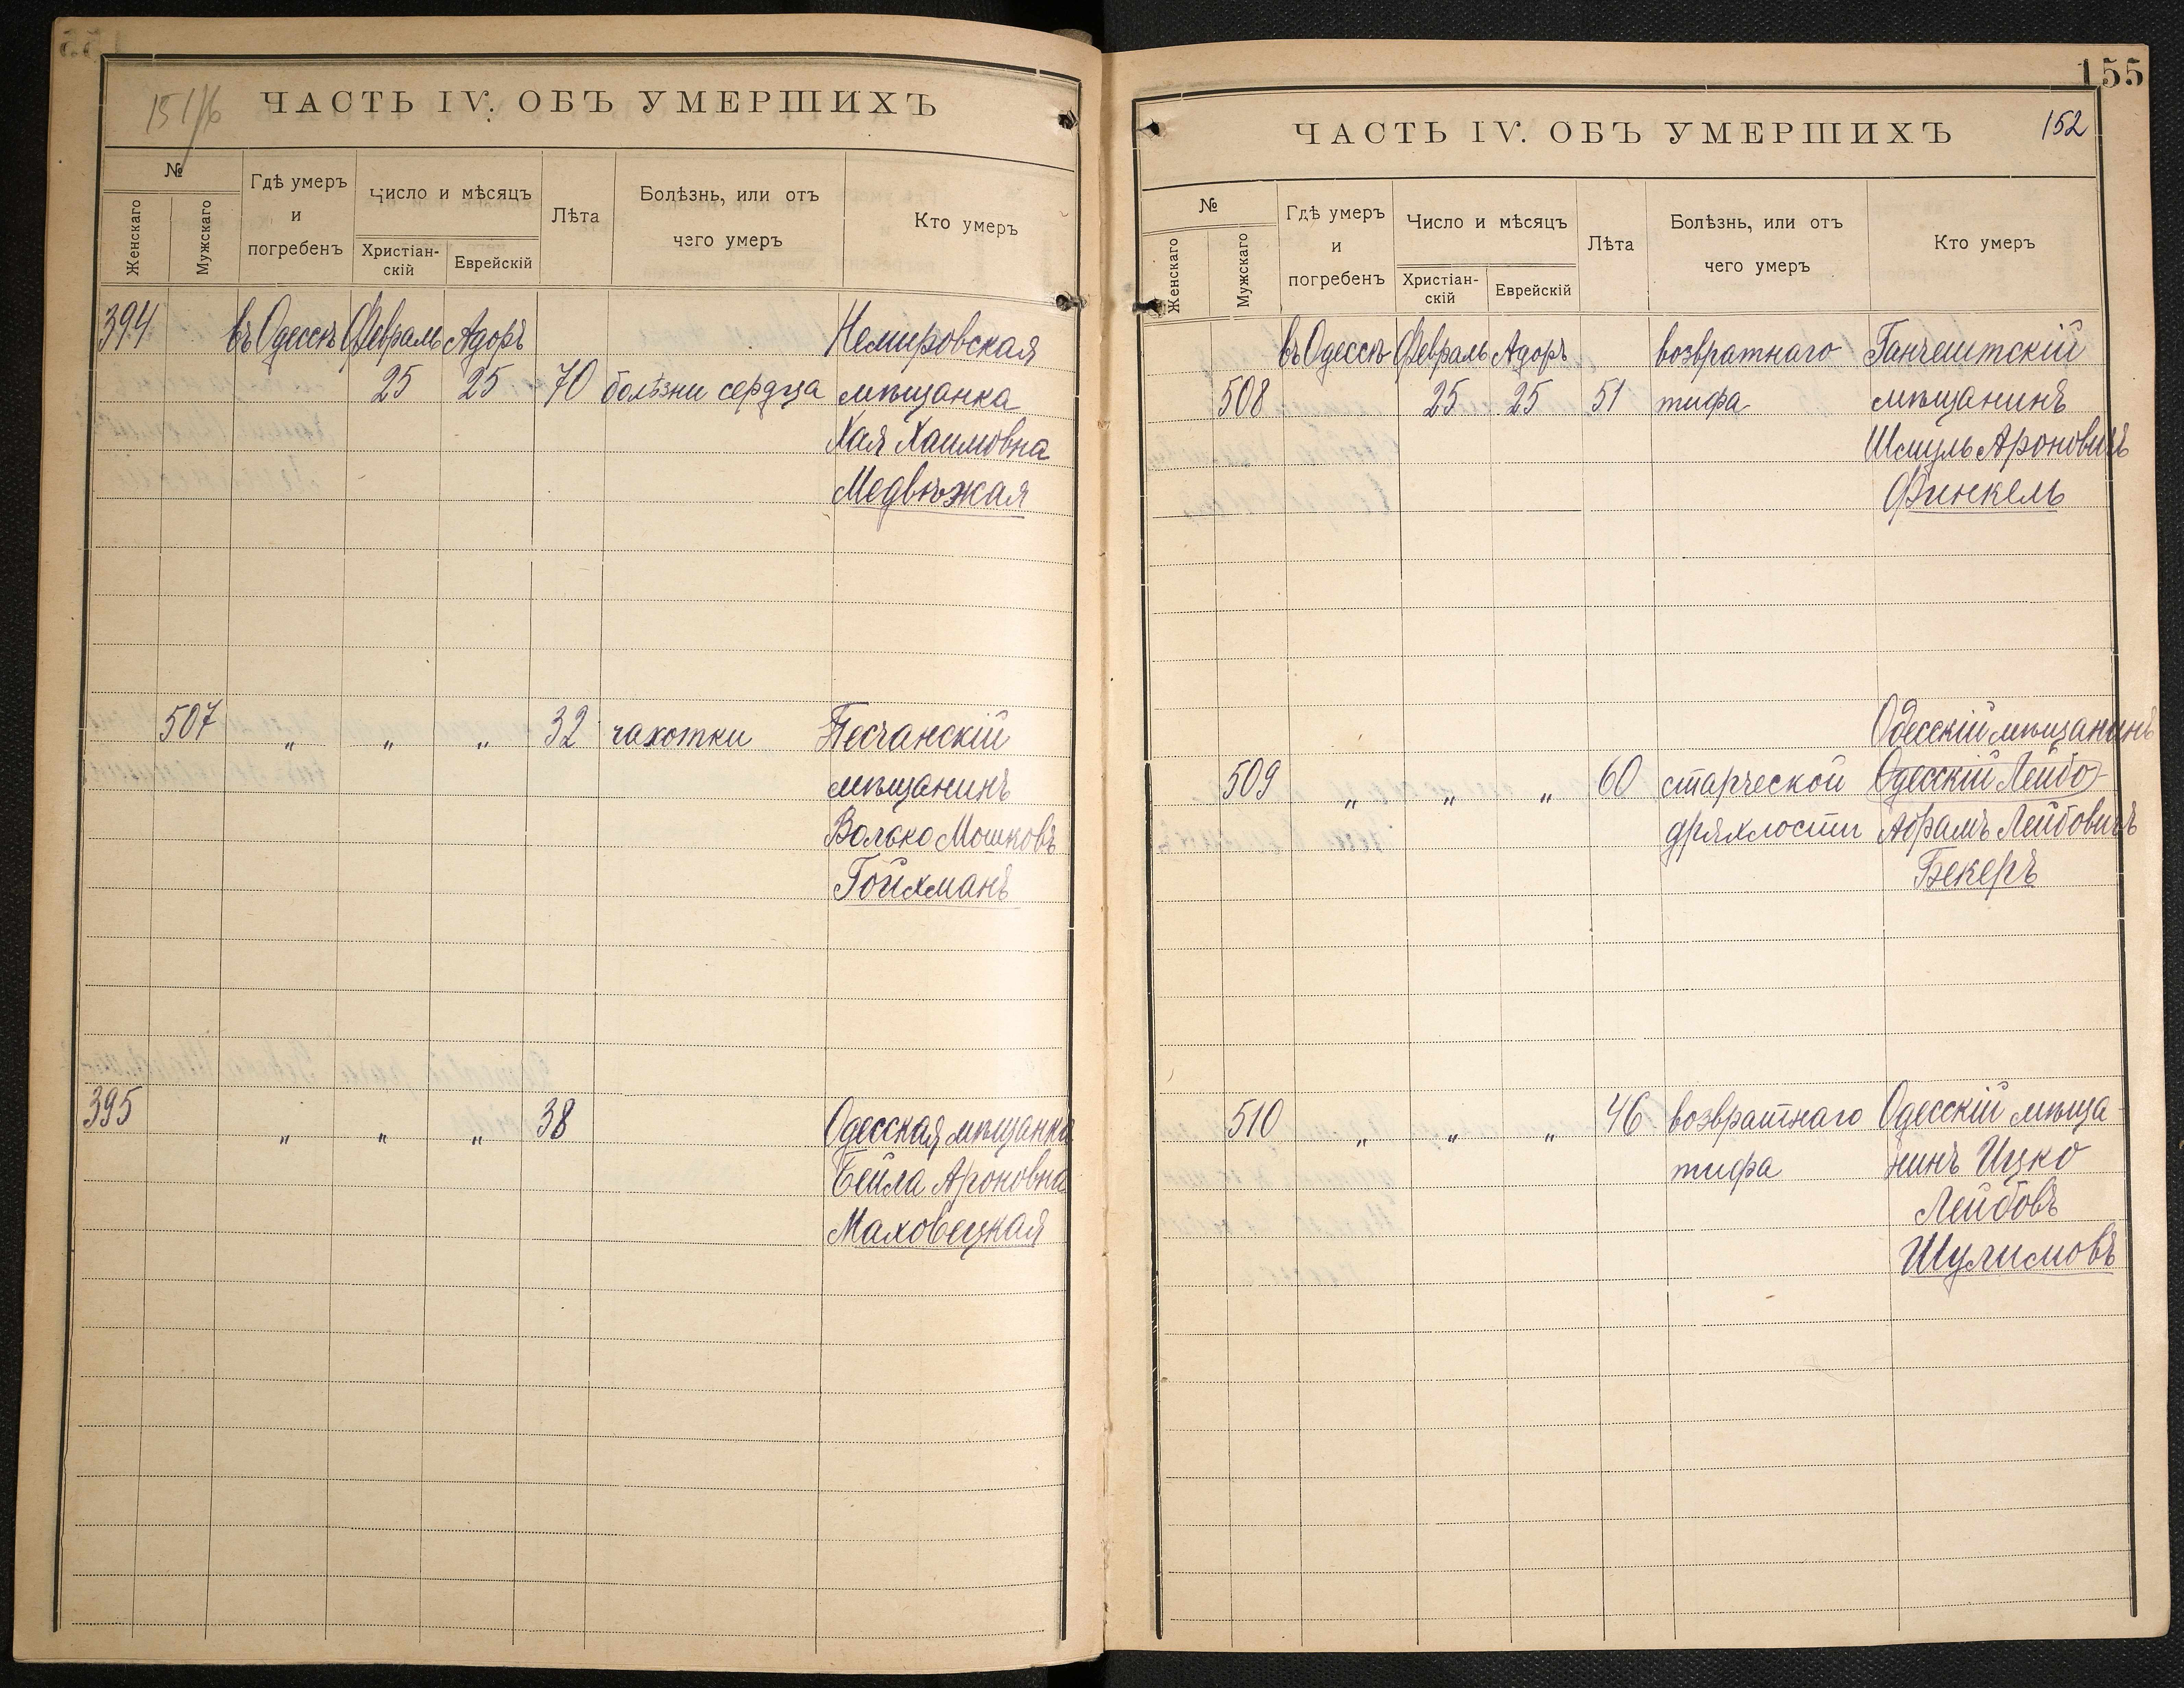 151/б
ЧАСТЬ IV. ОБЪ УМЕРШИХЪ
№
Женскаго
Мужскаго
Гдѣ умеръ
и
погребенъ
Число и мѣсяцъ
Христіан-
скій
Еврейскій
Лѣта
Болѣзнь, или отъ
чего умеръ
Кто умеръ
394 въ Одессѣ Февраль Адоръ Немировская
25 25 70 болѣзни сердца мѣщанка
Хая Хаимовна
Медвѣжая
507 " " " 32 чахотки Песчанскій
мѣщанинъ
Волько Мошковъ
Гойхманъ
395 " " " 38 Одесская мѣщанка
Бейла Ароновна
Маховецкая
155
152
ЧАСТЬ IV. ОБЪ УМЕРШИХЪ
№
Женскаго
Мужскаго
Гдѣ умеръ
и
погребенъ
Число и мѣсяцъ
Христіан-
скій
Еврейскій
Лѣта
Болѣзнь, или отъ
чего умеръ
Кто умеръ
въ Одессѣ Февраль Адоръ возвратнаго Ганчештскій
508 25 25 51 тифа мѣщанинъ
Шмуль Ароновичъ
Финкель
Одесскій мѣщанинъ
509 " " " 60 старческой Одесскій Лейбо
дряхлости Абрамъ Лейбовичъ
Бекеръ
510 " " " 46 возвратнаго Одесскій мѣща-
тифа нинъ Ицко
Лейбовъ
Шулимовъ